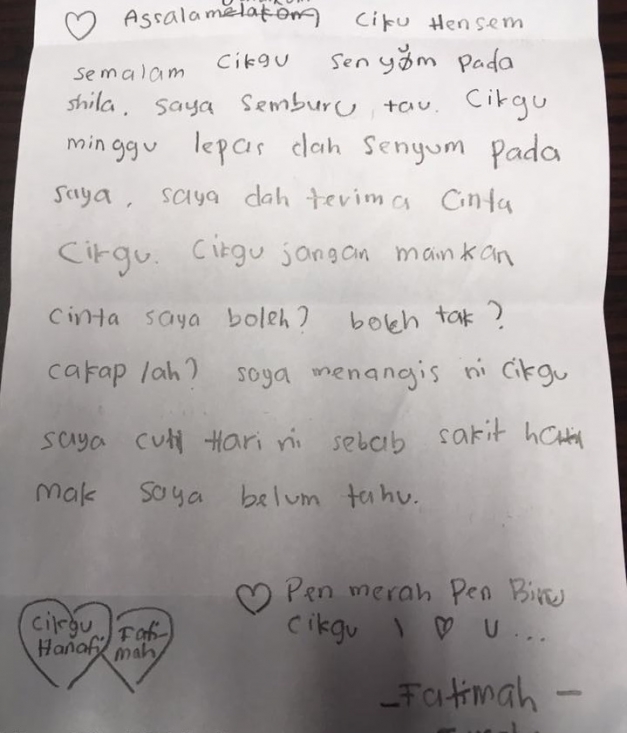 ♡ Assalamelakom Ciku Hensem
semalam Cikgu senyum pada
shila. saya Semburu tau. Cikgu
minggu lepas dah senyum pada
saya, saya dah terima Cinta
Cikgu. Cikgu jangan mainkan
cinta saya boleh? boleh tak?
cakap lah? saya menangis ni cikgu
saya cuti Hari ni sebab sakit hati
mak saya belum tahu.
♡ Pen merah Pen Biru
Cikgu I ♡ U...
Cikgu Hanafi
Fatimah
- Fatimah -